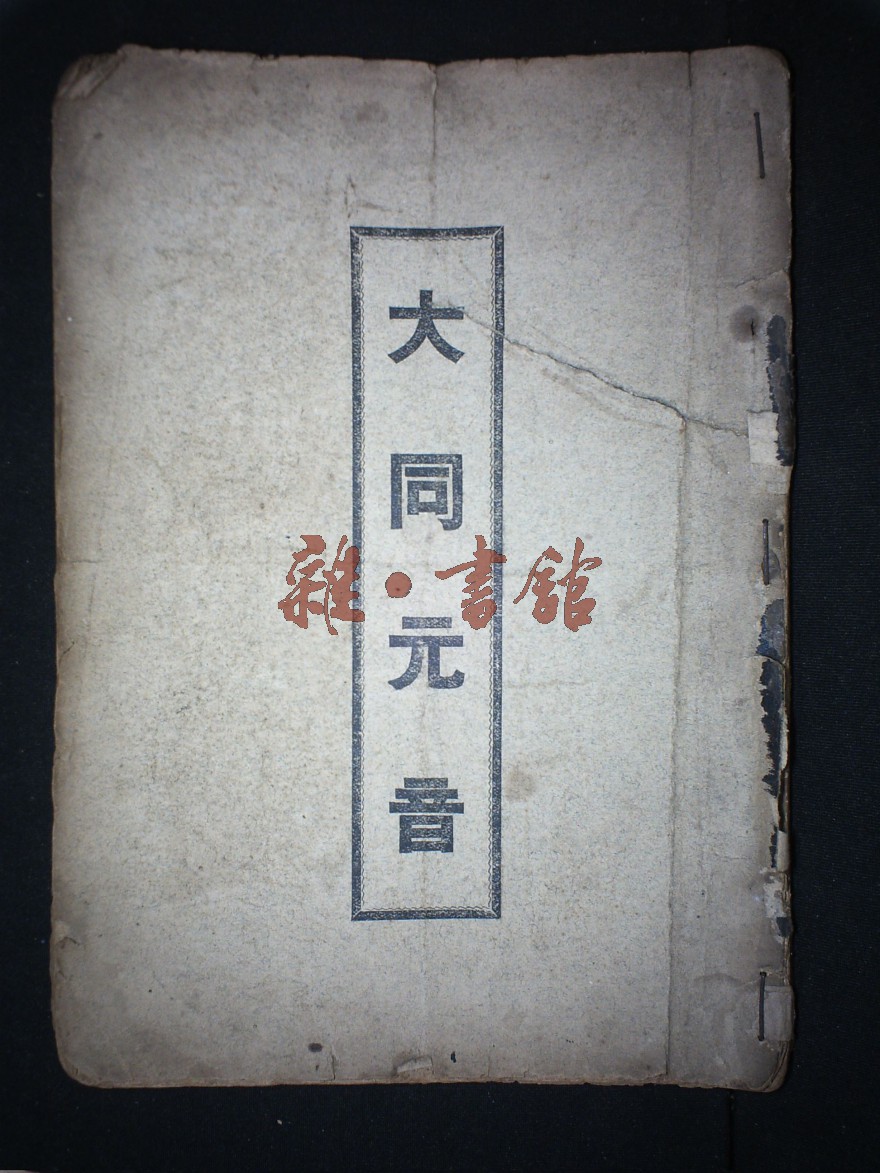 大同元音
雜·書館